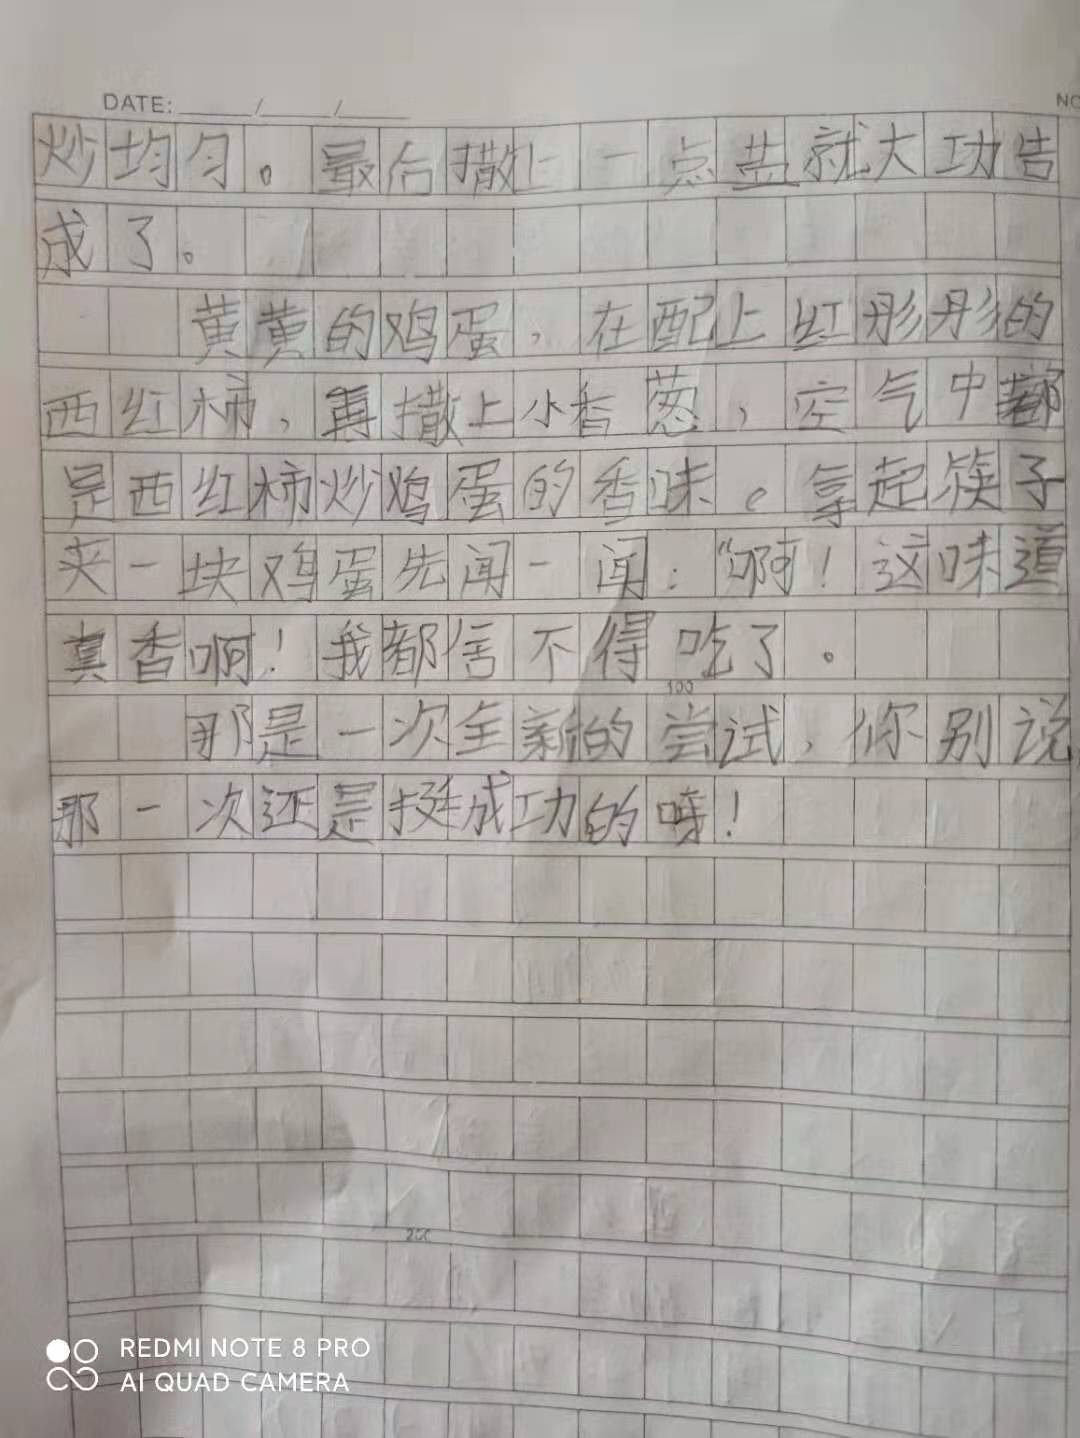 DATE: ____/____/____
NO
炒均匀。最后撒上一点盐就大功告
成了。
黄黄的鸡蛋,在配上红彤彤的
西红柿,再撒上小香葱,空气中都
是西红柿炒鸡蛋的香味。拿起筷子
夹一块鸡蛋先闻一闻:“啊!这味道
真香啊!我都舍不得吃了。
100
那是一次全新的尝试,你别说,
那一次还是挺成功的呀!
200
REDMI NOTE 8 PRO
AI QUAD CAMERA